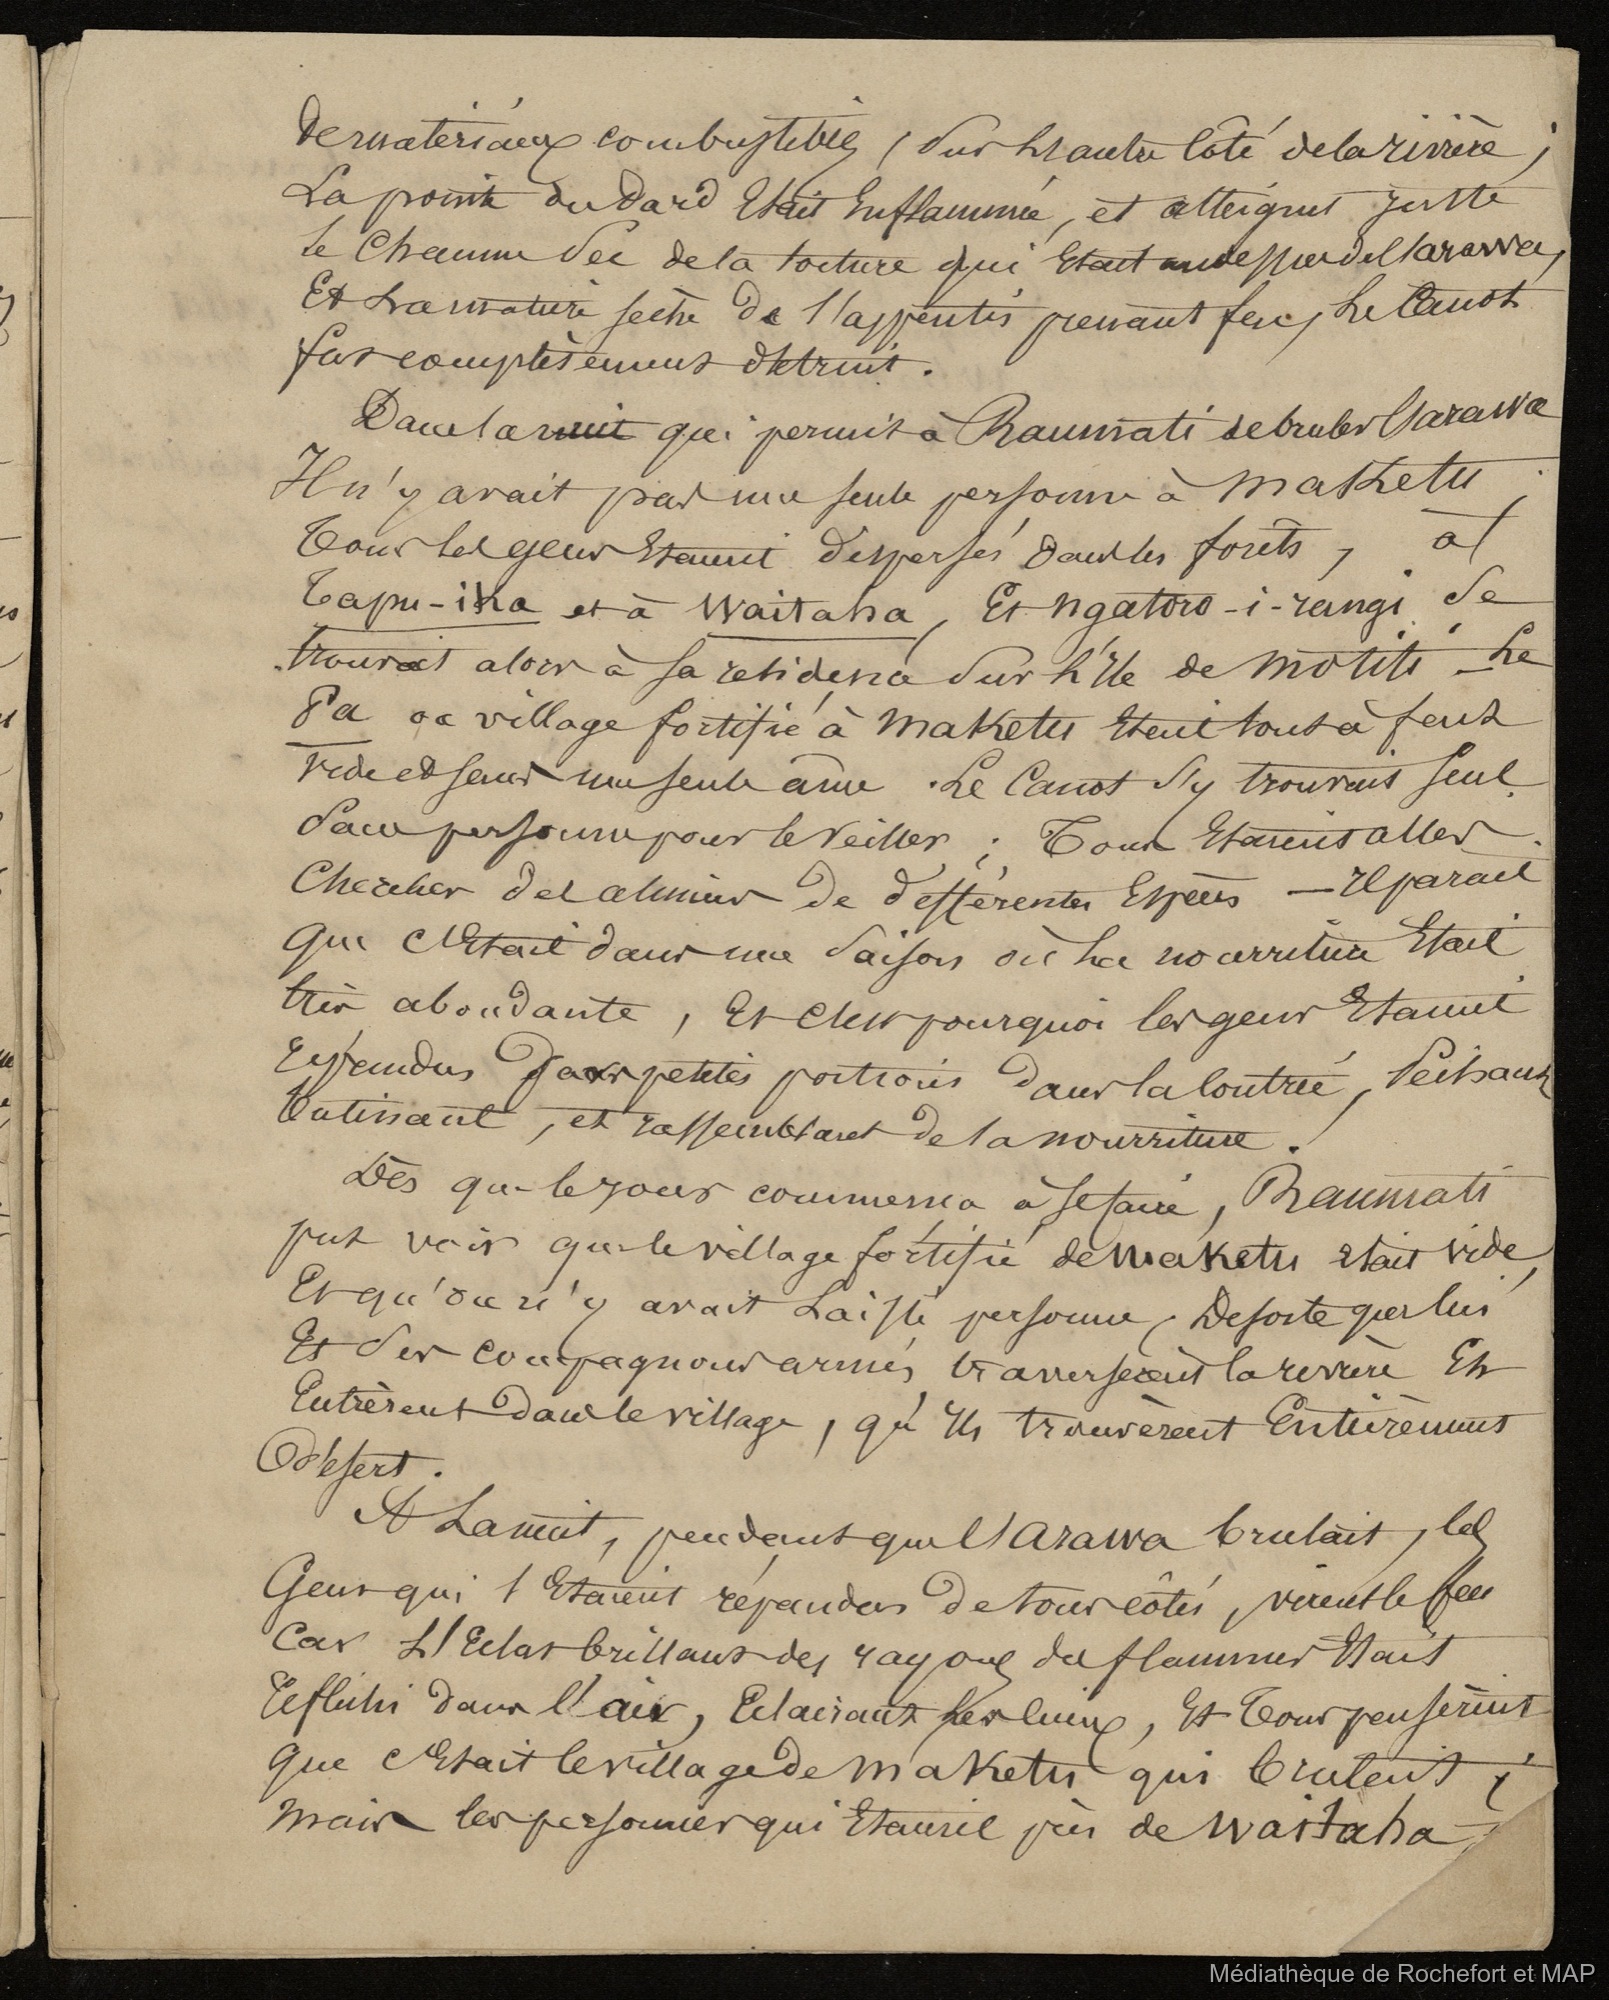 de matériaux combustibles, sur l'autre côté de la rivière;
La pointe du dard Etait Enflammée, et atteignit juste
le Chaume sec de la toiture qui Etait au dessus de l'arawa,
Et la matière sèche de l'appentis prenant feu, Le Canot
fut complètement détruit.
Dans la nuit qui permit à Raumati de bruler l'arawa
Il n'y avait pas une seule personne à Maketu;
Tous les gens Etaient dispersés dans les forêts, à
Tapu-ika et à Waitaha, Et Ngatoro-i-rangi se
trouvait alors à sa résidence sur l'Ile de Motiti - Le
Pa ou village fortifié à Maketu Etait tout à fait
vide et sans une seule âme. Le Canot s'y trouvait seul
sans personne pour le veiller; Tous Etaient allés
Chercher des aliments de différentes Espèces - Il parait
que C'Etait dans une saison où la nourriture Etait
très abondante, Et c'est pourquoi les gens Etaient
répandus par petites portions dans la contrée, Pêchant
Cultivant, et rassemblant de la nourriture.
Dès que le jour commença à se faire, Raumati
put voir que le village fortifié de Maketu était vide,
Et qu'on n'y avait Laissé personne, De sorte que lui
Et ses compagnons armés traversèrent la rivière Et
Entrèrent dans le village, qu'Ils trouvèrent Entièrement
Désert.
A La nuit, pendant que l'Arawa brulait, les
Gens qui s'Etaient répandus de tous côtés, virent le feu
Car L'Eclat brillant des rayons des flammes Etait
Réfléchi dans l'air, Eclairant les cieux, Et Tous pensèrent
que C'Etait le village de Maketu qui brulait;
Mais les personnes qui Etaient près de Waitaha
Médiathèque de Rochefort et MAP